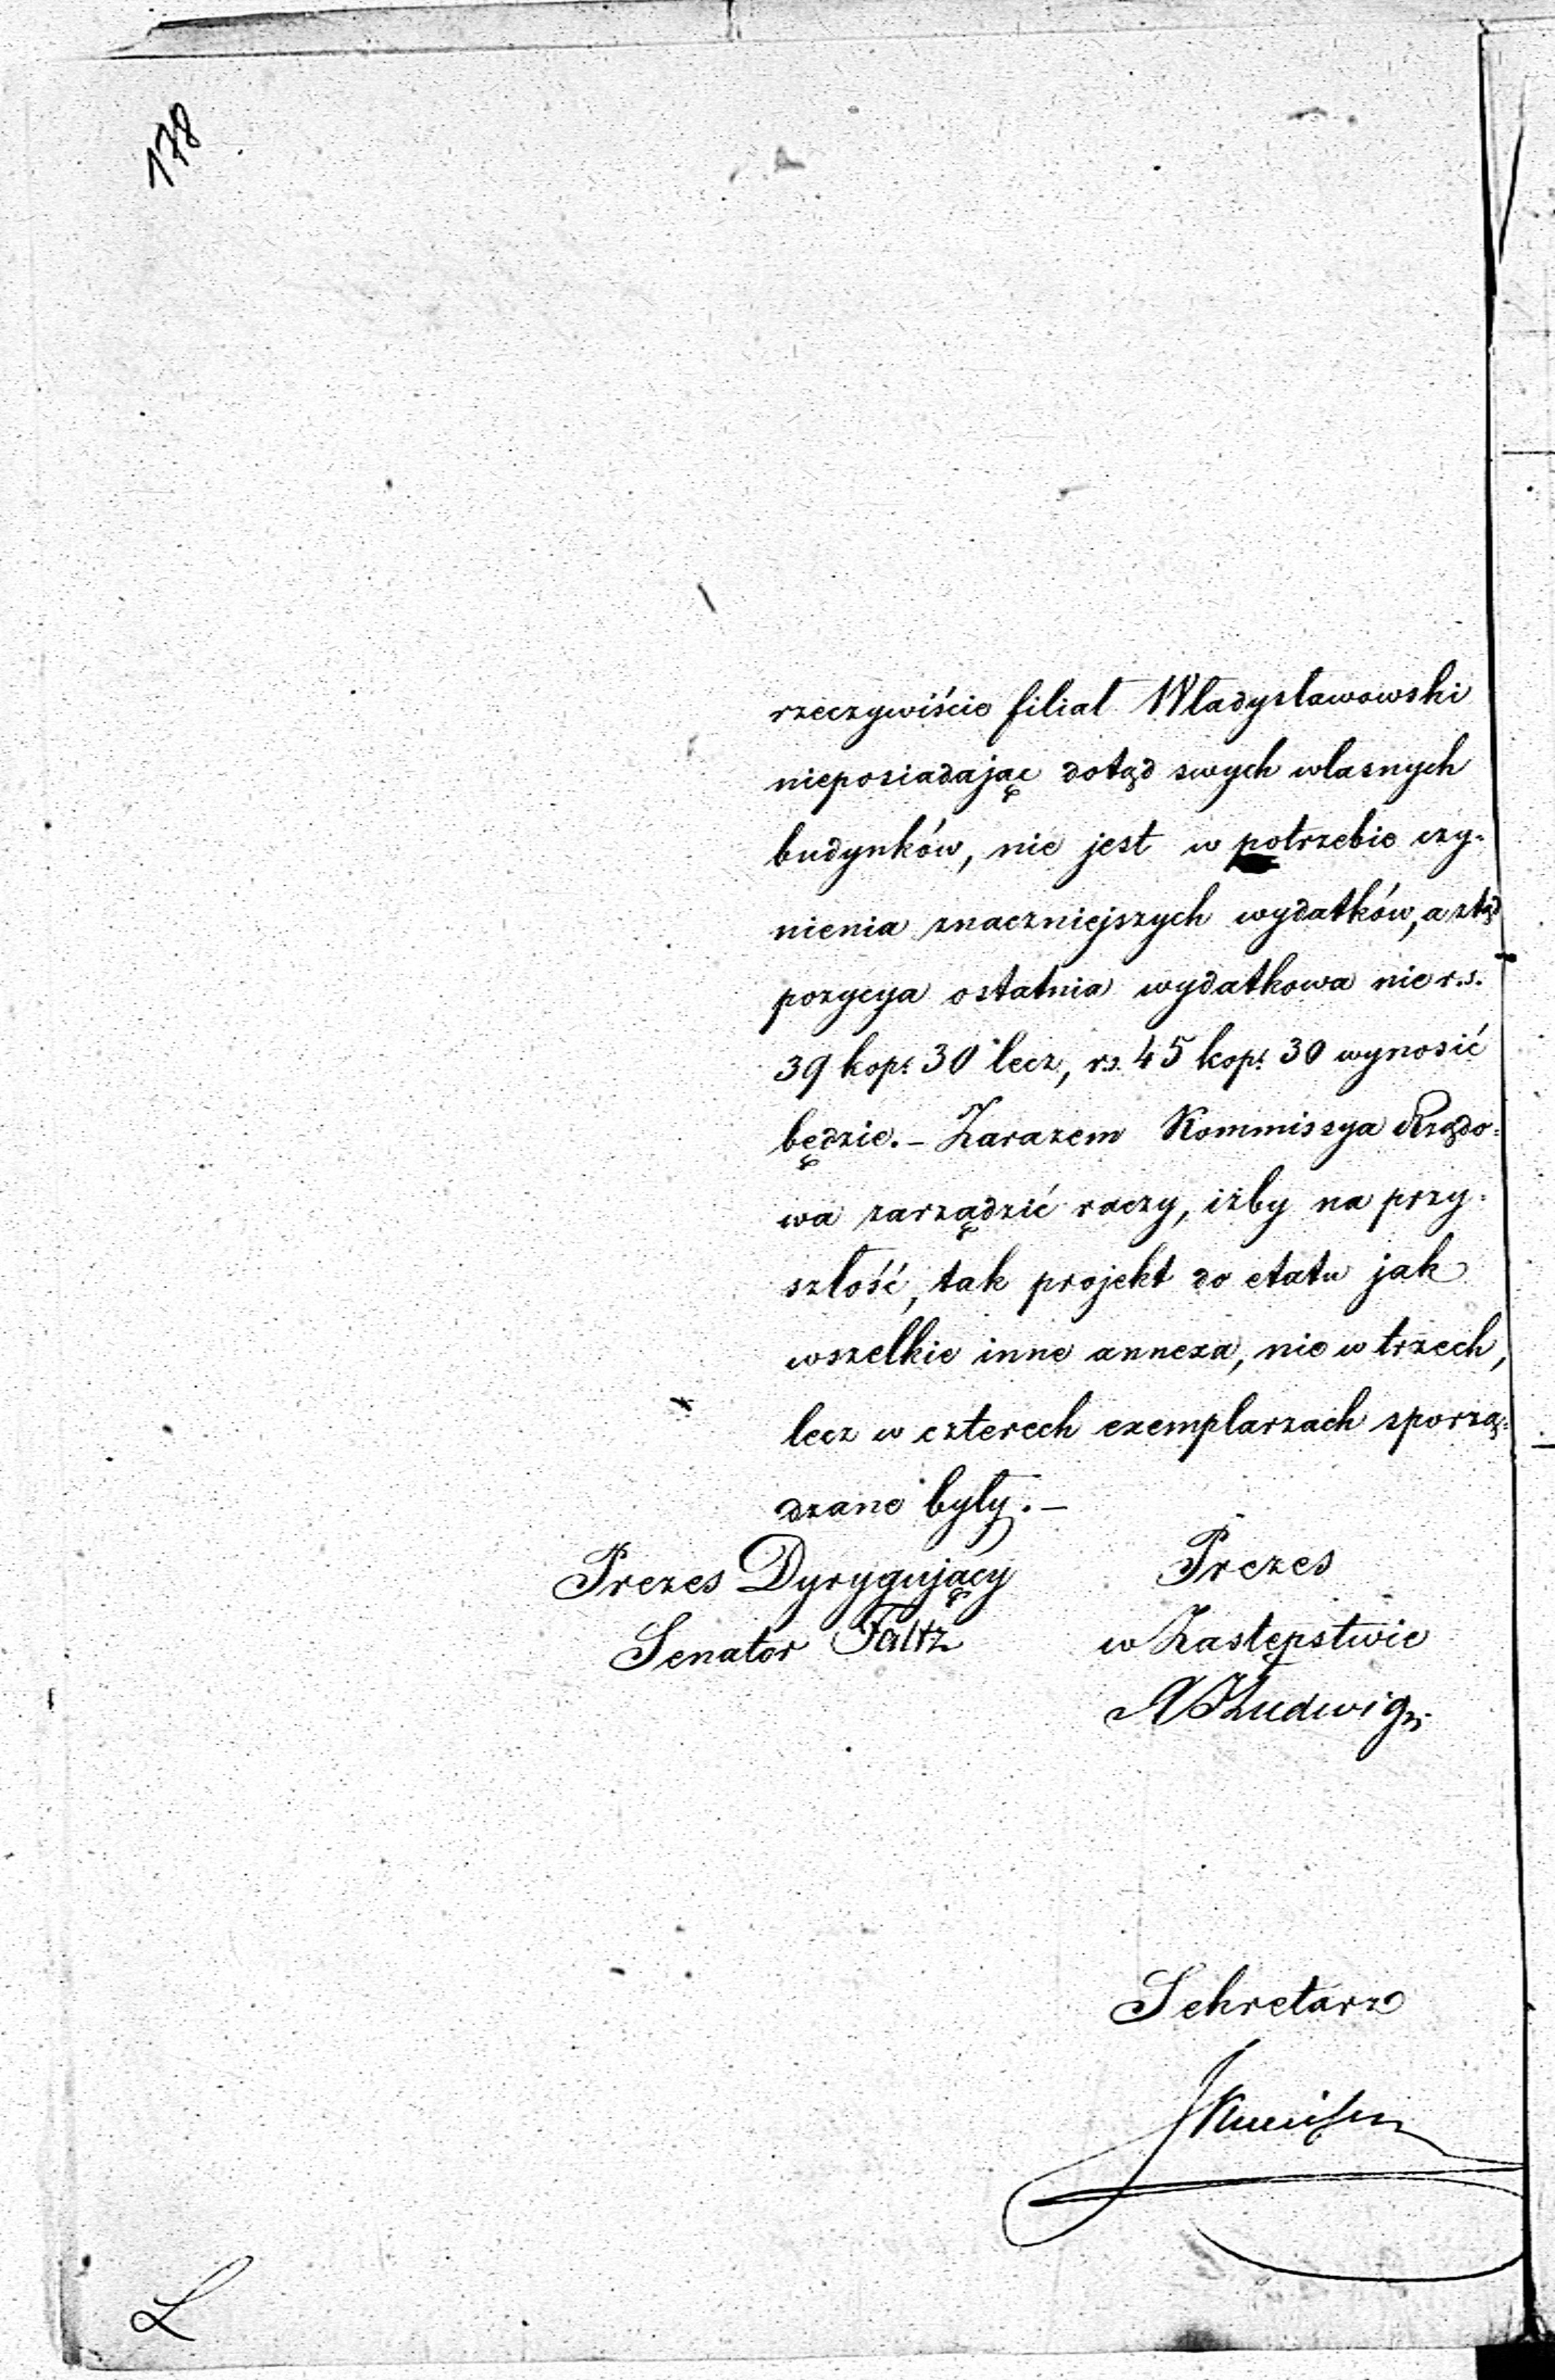 178
rzeczywiście filiał Władysławowski
nieposiadając dotąd swych własnych
budynków, nie jest w potrzebie czy-
nienia znaczniejszych wydatków, a ztąd
pozycya ostatnia wydatkowa nie r.s.
39 kop. 30 lecz, rs. 45 kop. 30 wynosić
będzie. – Zarazem Kommissya Rządo-
wa zarządzić raczy, iżby na przy-
szłość, tak projekt do etatu jak
wszelkie inne annexa, nie w trzech,
lecz w czterech exemplarzach sporzą-
dzane były. –
Prezes Dyrygujący
Senator
Prezes
w Zastępstwie
Ludwig
Sekretarz
L